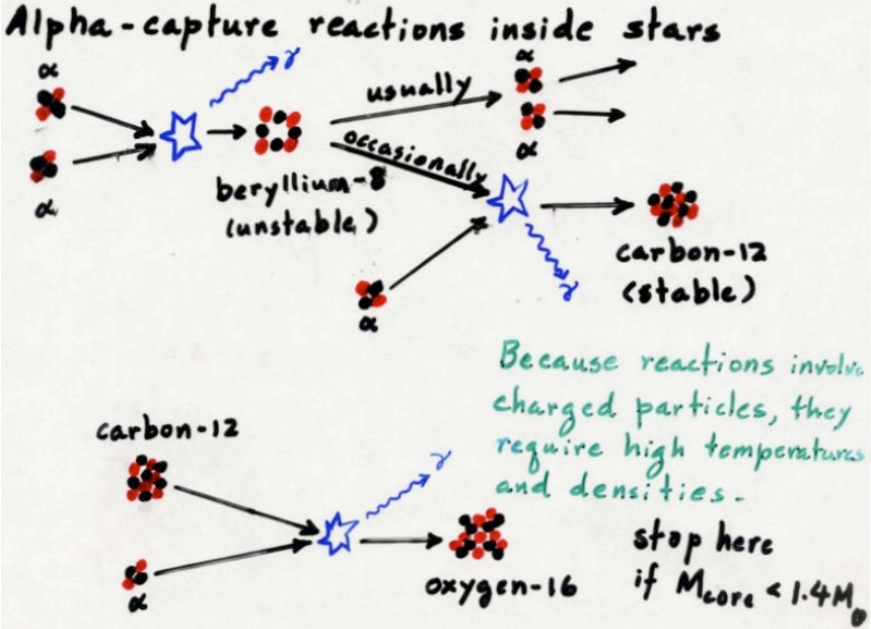 Alpha-capture reactions inside stars
α
γ
usually
α
α
occasionally
beryllium-8
(unstable)
α
α
γ
carbon-12
(stable)
Because reactions involve
charged particles, they
require high temperatures
and densities.
carbon-12
γ
α
oxygen-16
stop here
if Mcore < 1.4M⊙